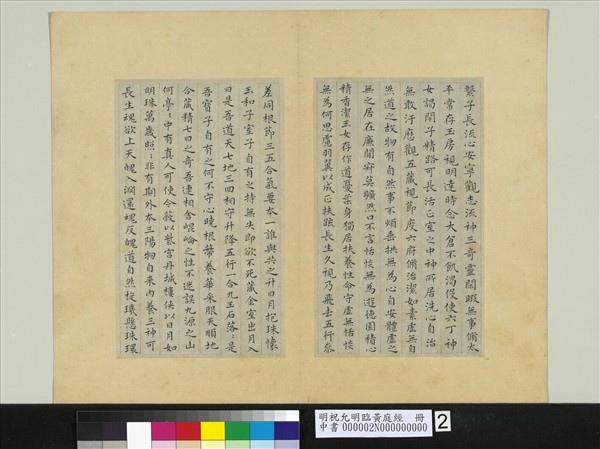 繫子長流心安寧觀志流神三奇靈閑暇無事脩太
平常存玉房視明達時念大倉不飢渴役使六丁神
女謁閉子精路可長活正室之中神所居洗心自治
無敢汙歷觀五藏視節度六府脩治潔如素虛無自
然道之故物有自然事不煩垂拱無為心自安體虛之
無之居在廉間寂莫曠然口不言恬惔無為遊德園積心
精香潔玉女存作道憂柔身獨居扶養性命守虛無恬惔
無為何思慮羽翼以成正扶疏長生久視乃飛去五行參
差同根節三五合氣要本一誰與共之升日月抱珠懷
玉和子室子自有之持無失即欲不死藏金室出月入
日是吾道天七地三回相守升降五行一合九玉石落〻是
吾寶子自有之何不守心曉根蒂養華采服天順地
合藏精七日之奇吾連相舍崐崘之性不迷誤九源之山
何亭〻中有真人可使令蔽以紫宮丹城樓俠以日月如
明珠萬歲照〻非有期外本三陽物自來內養三神可
長生魂欲上天魄入淵還魂反魄道自然旋璣懸珠環
明祝允明臨黃庭經 冊
中書 000002N000000000
2